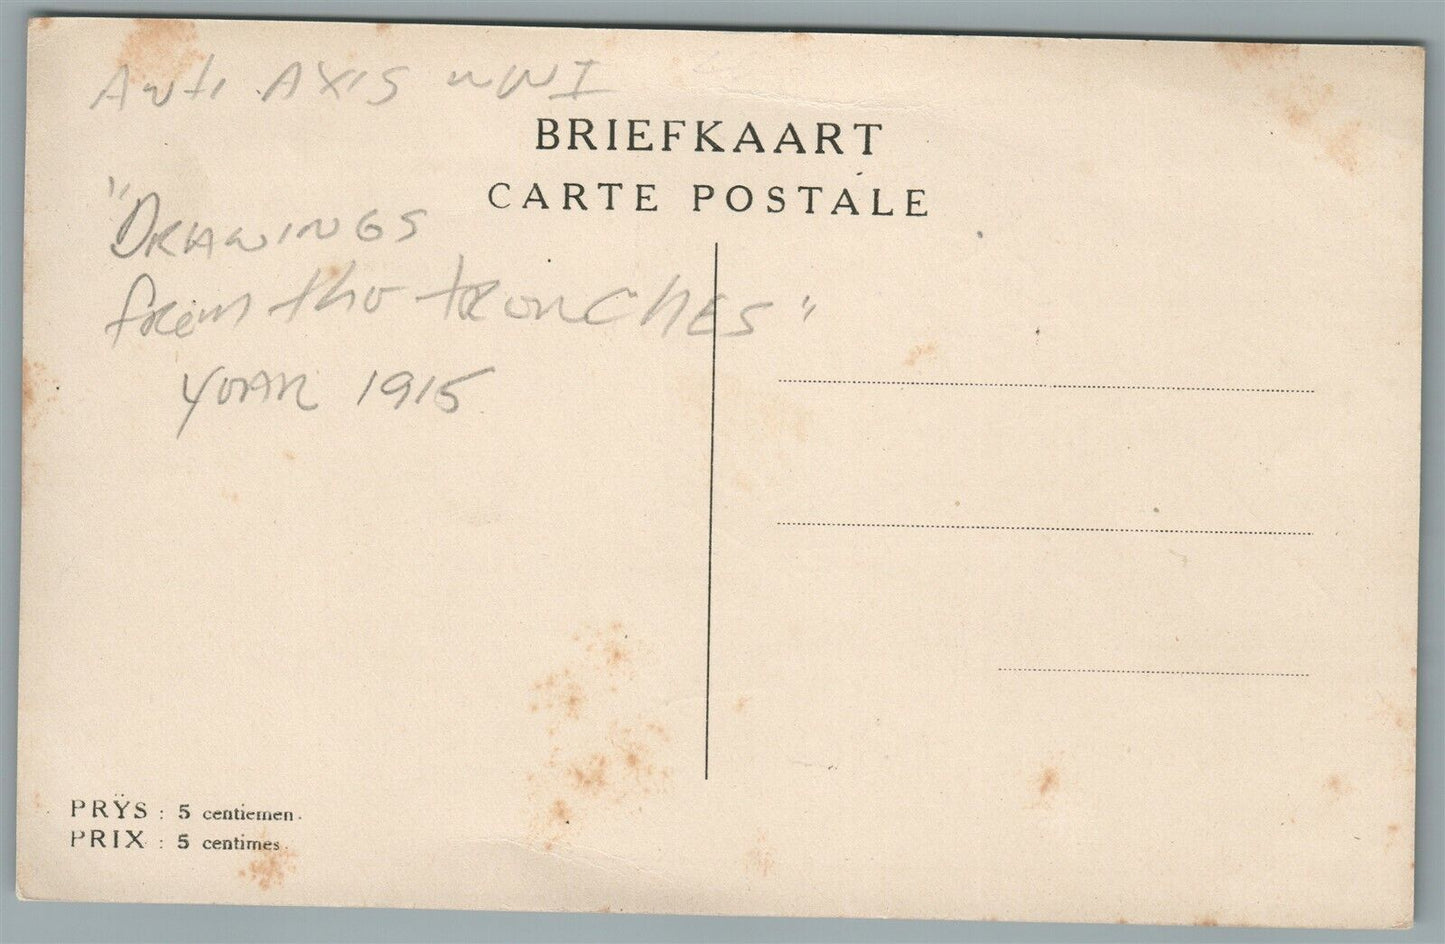 Anti AXIS WWI
BRIEFKAART
CARTE POSTALE
"DRAWINGS
from the trenCHES"
YEAR 1915
PRŸS : 5 centiemen.
PRIX : 5 centimes.